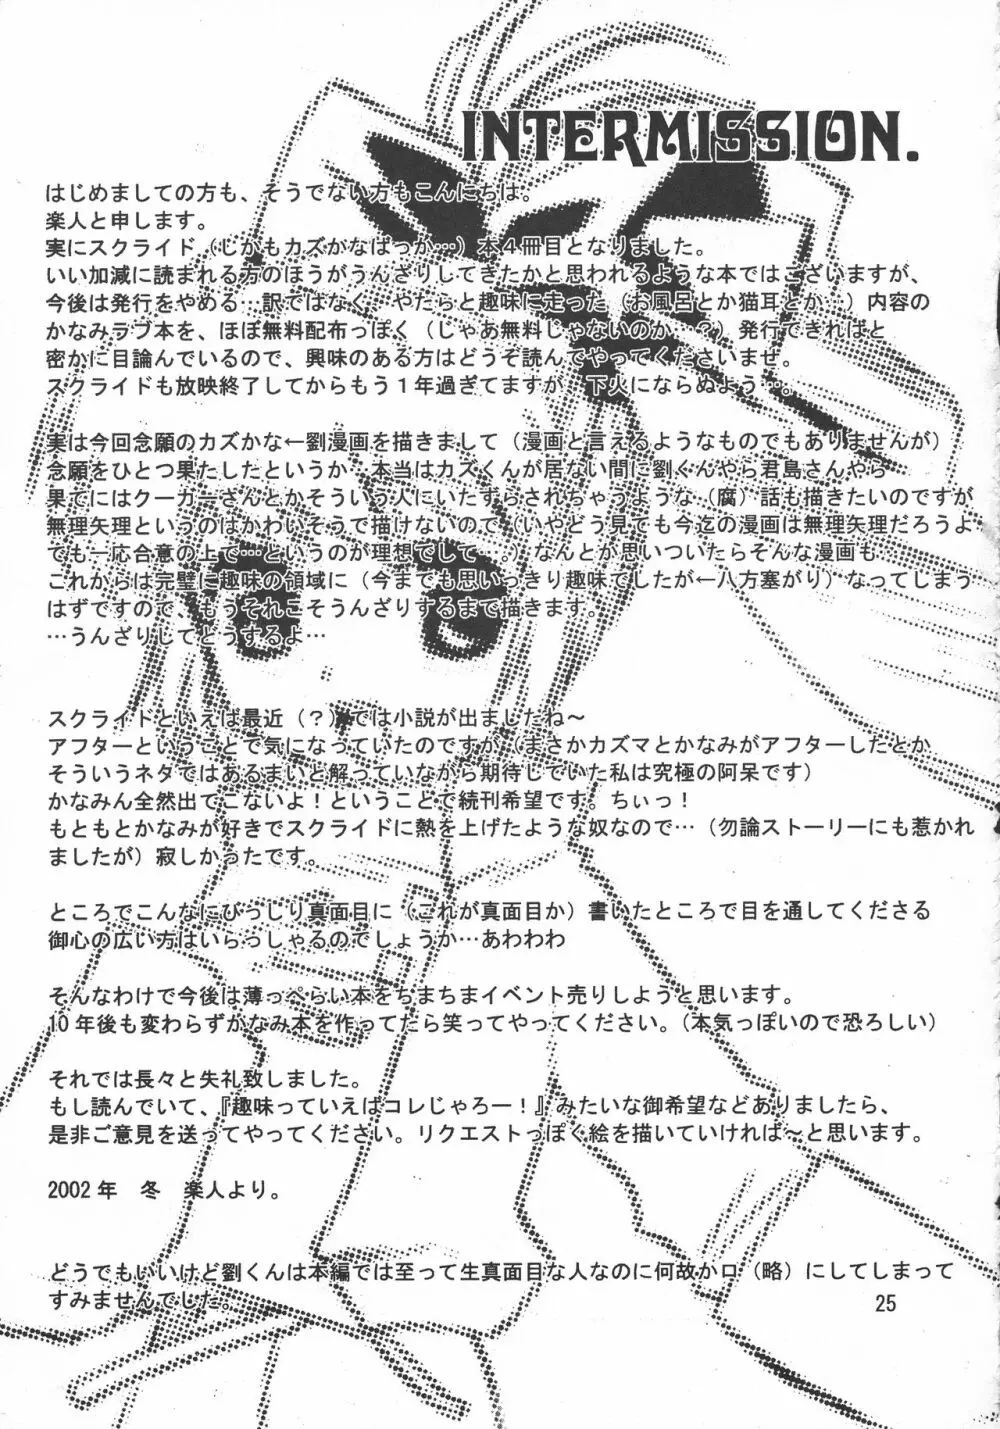 INTERMISSION.
はじめましての方も、そうでない方もこんにちは。
楽人と申します。
実にスクライド（しかもカズかなばっか…）本４冊目となりました。
いい加減に読まれる方のほうがうんざりしてきたかと思われるような本ではございますが、
今後は発行をやめる…訳ではなく…やたらと趣味に走った（お風呂とか猫耳とか…）内容の
かなみラブ本を、ほぼ無料配布っぽく（じゃあ無料じゃないのか…？）発行できればと
密かに目論んでいるので、興味のある方はどうぞ読んでやってくださいませ。
スクライドも放映終了してからもう１年過ぎてますが、下火にならぬよう…。
実は今回念願のカズかな←劉漫画を描きまして（漫画と言えるようなものでもありませんが）
念願をひとつ果たしたというか、本当はカズくんが居ない間に劉くんやら君島さんやら
果てにはクーガーさんとかそういう人にいたずらされちゃうような（腐）話も描きたいのですが
無理矢理というのはかわいそうで描けないので（いやどう見ても今迄の漫画は無理矢理だろうよ
でも一応合意の上で…というのが理想でして…。）なんとか思いついたらそんな漫画も…
これからは完璧に趣味の領域に（今までも思いっきり趣味でしたが←八方塞がり）なってしまう
はずですので、もうそれこそうんざりするまで描きます。
…うんざりしてどうするよ…
スクライドといえば最近（？）では小説が出ましたね～
アフターということで気になっていたのですが（まさかカズマとかなみがアフターしたとか
そういうネタではあるまいと解っていながら期待していた私は究極の阿呆です）
かなみん全然出てこないよ！ということで続刊希望です。ちぃっ！
もともとかなみが好きでスクライドに熱を上げたような奴なので…（勿論ストーリーにも惹かれ
ましたが）寂しかったです。
ところでこんなにびっしり真面目に（これが真面目か）書いたところで目を通してくださる
御心の広い方はいらっしゃるのでしょうか…あわわわ
そんなわけで今後は薄っぺらい本をちまちまイベント売りしようと思います。
10年後も変わらずかなみ本を作ってたら笑ってやってください。（本気っぽいので恐ろしい）
それでは長々と失礼致しました。
もし読んでいて、『趣味っていえばコレじゃろー！』みたいな御希望などありましたら、
是非ご意見を送ってやってください。リクエストっぽく絵を描いていければ～と思います。
2002年　冬　楽人より。
どうでもいいけど劉くんは本編では至って生真面目な人なのに何故かロ（略）にしてしまって
すみませんでした。
25